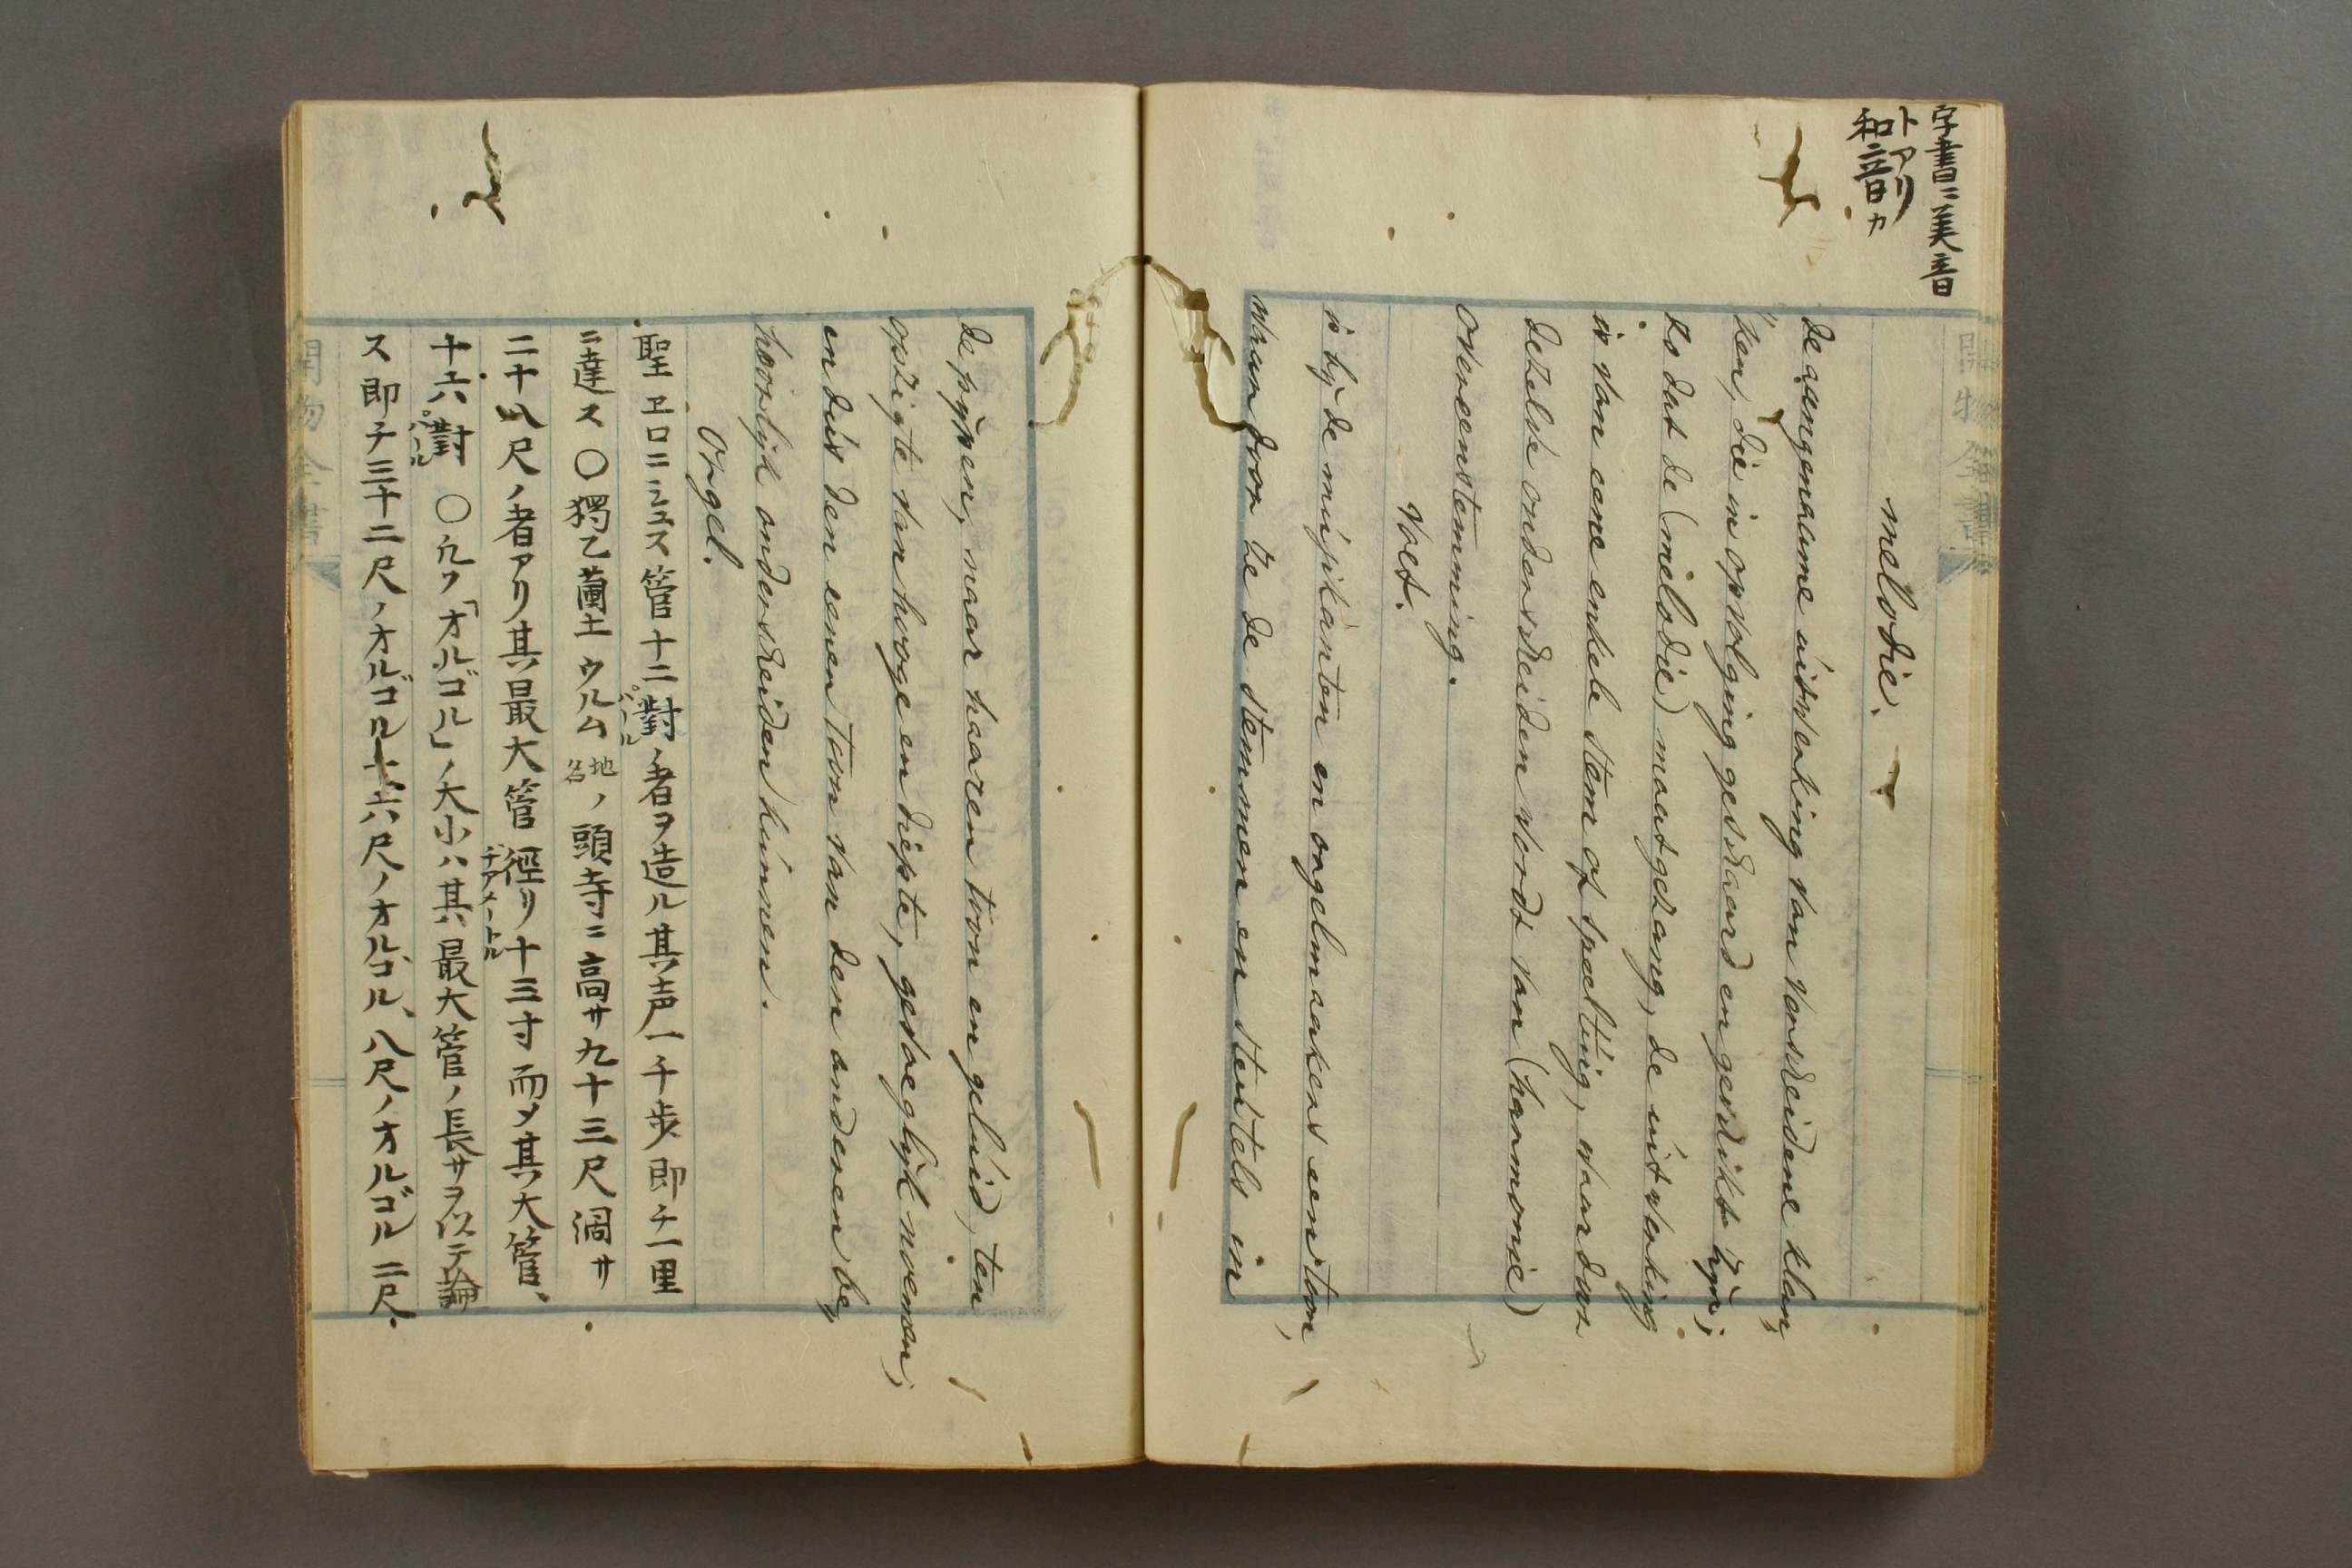 字書ニ美音
トアリ
和音カ
開物全書
melodie.
de aangenaame uitwerking van verscheidene klan,
ken, die in opvolging geschaard en geschikt zijn;
zo dat de (melodie) maatgezang, de uitwerking
is van eene enkele stem of speeltuig, waar door
dezelve onderscheiden wordt van (harmonie)
overeenstemming.
voet.
is bij de muzikanten en orgelmaakers een toon,
waar door ze de stemmen en sleutels in
de pijpen, naar haaren toon en geluid, ten
opzigte van hooge en diepte, gevoeglijk noemen,
en dus den eenen toon van den anderen be,
hoorlijk onderscheiden kunnen.
orgel.
聖ヱロニミュス管十二對パールノ者ヲ造ル其声一千歩即チ一里
ニ達ス〇獨乙蘭土ウルム地名ノ頭寺ニ高サ九十三尺濶サ
二十八尺ノ者アリ其最大管徑リヂアメートル十三寸而メ其大管、
十六對パール〇凢ソ「オルゴル」ノ大小ハ其最大管ノ長サヲ以テ論
ス即チ三十二尺ノオルゴル十六尺ノオルゴル、八尺ノオルゴル二尺、
開物全書